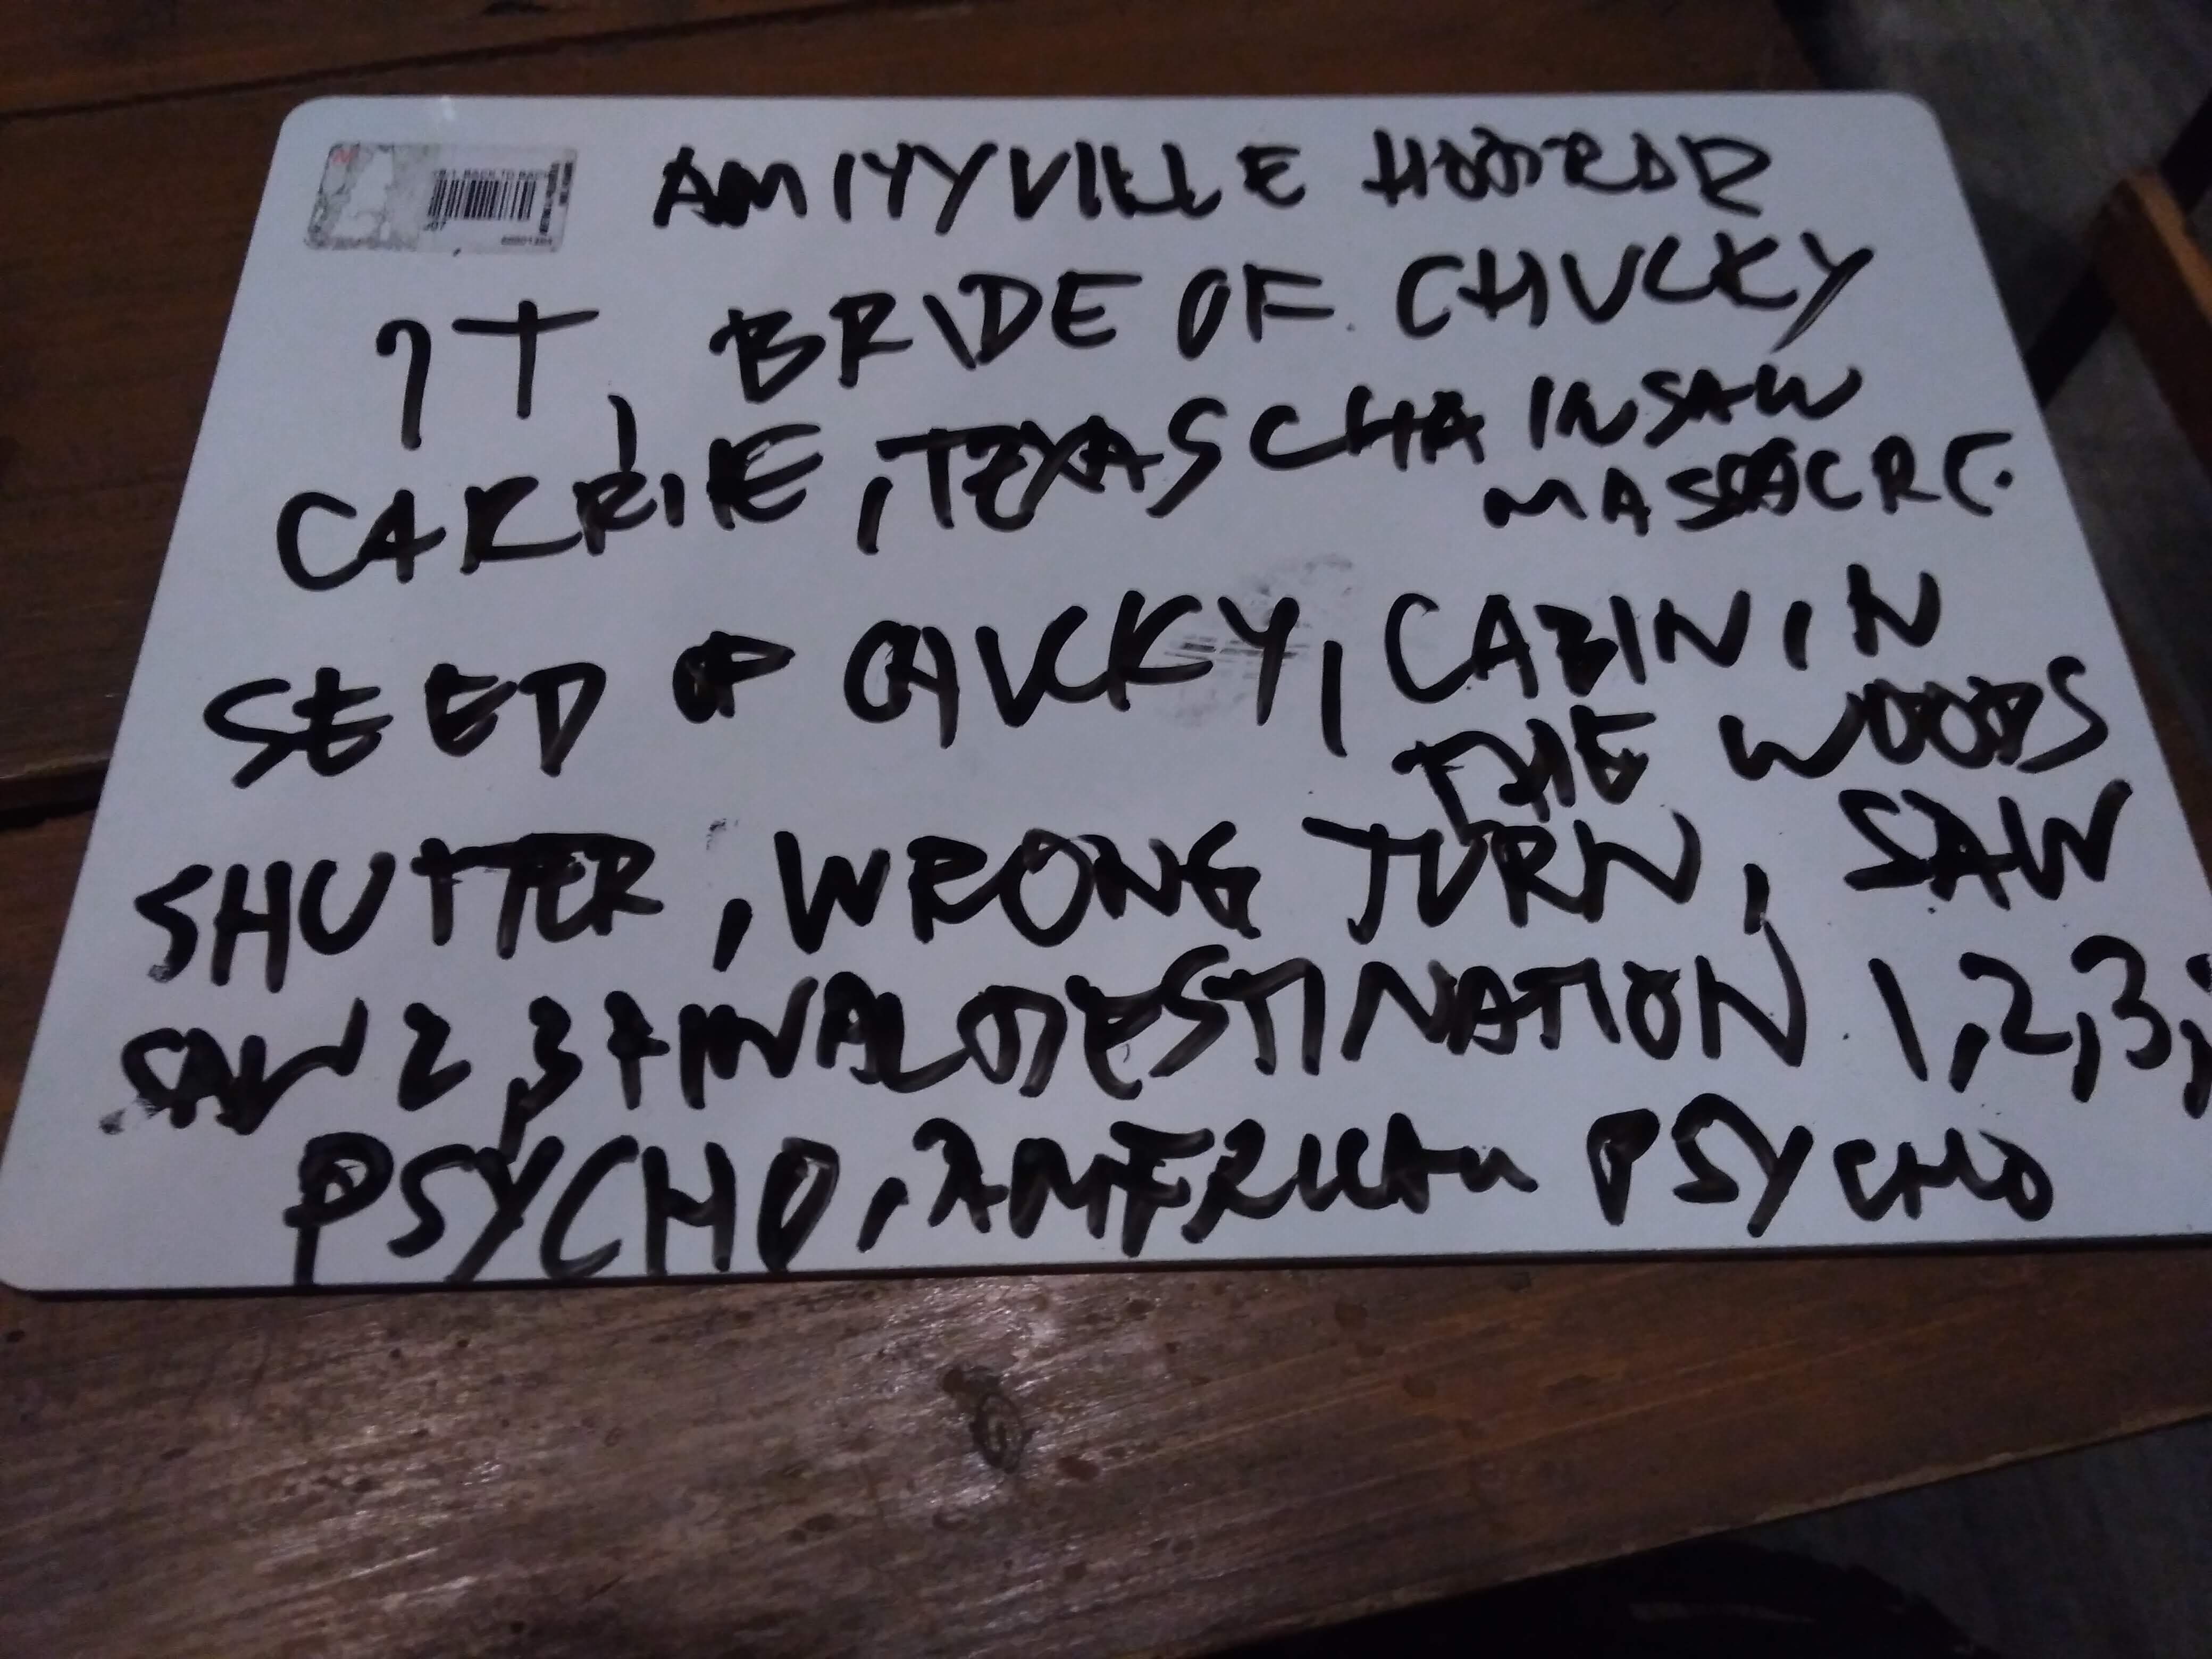 AMITYVILLE HORROR
IT, BRIDE OF CHUCKY
CARRIE, TEXAS CHAINSAW
MASSACRE.
SEED OF CHUCKY, CABIN IN
THE WOODS
SHUTTER, WRONG TURN, SAW
SAW 2, 3 FINAL DESTINATION 1, 2, 3,
PSYCHO, AMERICAN PSYCHO